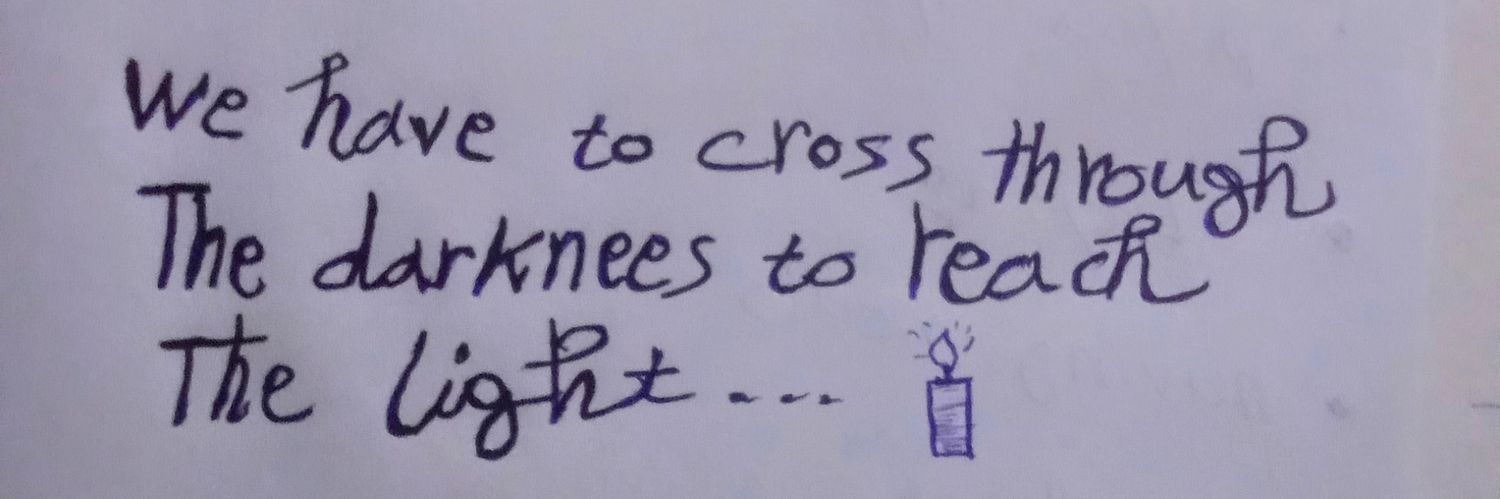 We have to cross through
The darknees to reach
The light....